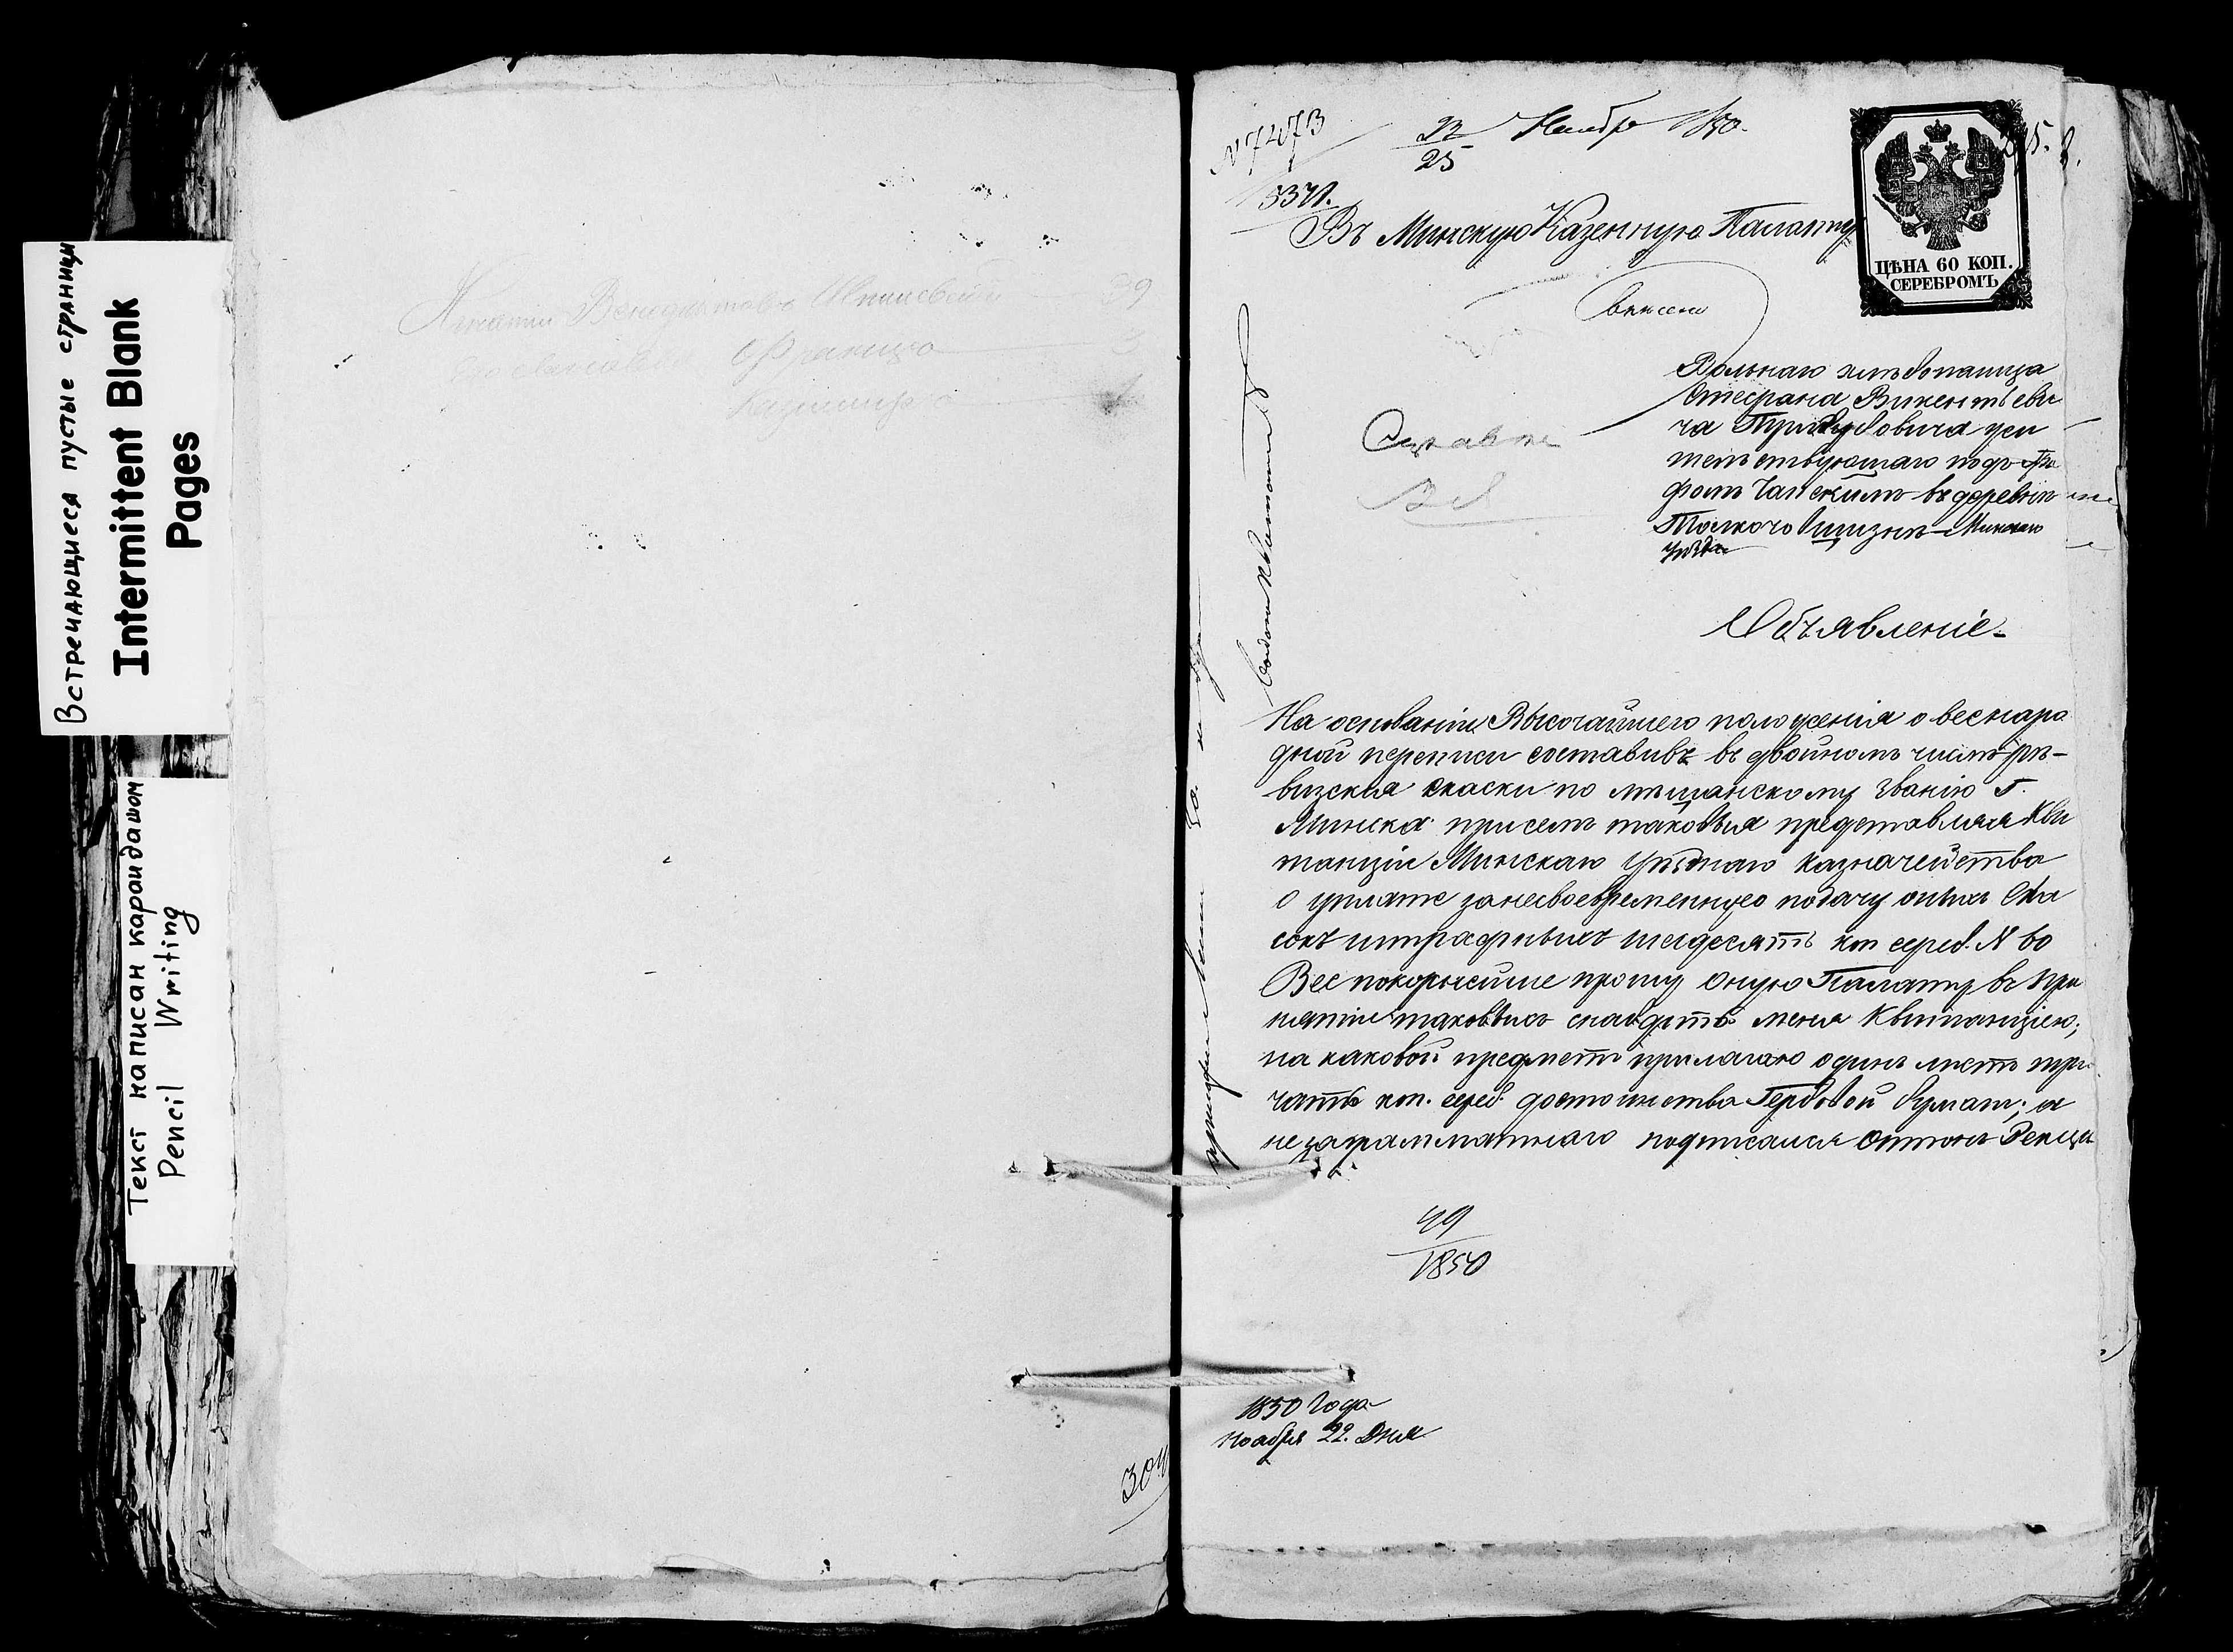 Встречающиеся пустые страницы
Intermittent Blank
Pages
Текст написан карандашом
Pencil Writing
39
Францъ 3
304
N 7473
22 Ноября 1850.
25
Въ Минскую Казенную Палату
ЦѢНА 60 КОП.
СЕРЕБРОМЪ
Вольнаго хлѣбопашца
Стефана Викентьеви
ча жи
тельствующаго подъ Гра
фомъ Чапскимъ въ деревнѣ
Минскаго
уѣзда
Объявленіе
На основаніи Высочайшего положенія о веснаро
дной переписи составивъ въ двойномъ числѣ рѣ-
визскія скаски по мѣщанскому званію Г.
Минска присемъ таковыя представляя Кви
танціи Минскаго Уѣзднаго казначейства
о уплате занесвоевременную подачу оныхъ Ска
сокъ штрафныхъ шидесятъ коп сереб. N 60
Вес покорнейше прошу Оную Палату въ при
нятіи таковыхъ снабдить меня Квитанціею;
на каковой предметъ прилагаю одинъ листъ три
чать коп. сереб. достоинства Гербовой бумаги; а
незаграмматнаго подписался
49
1850
1850 Года
Ноября 22. Дня